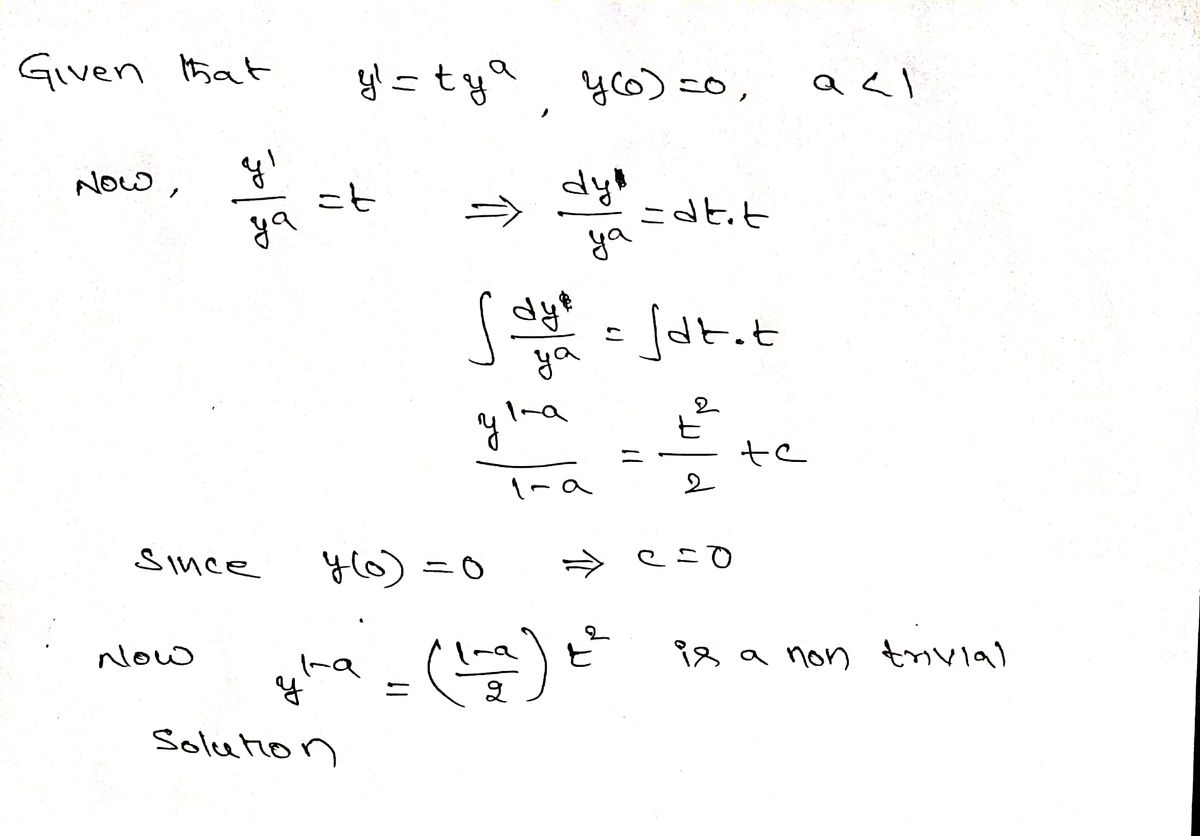 Given that y' = ty^a, y(0) = 0, a < 1
Now, y'/y^a = t ⇒ dy/y^a = dt.t
∫ dy/y^a = ∫ dt.t
y^(1-a)/(1-a) = t^2/2 + c
Since y(0) = 0 ⇒ c = 0
Now y^(1-a) = ((1-a)/2) t^2 is a non trivial
Solution